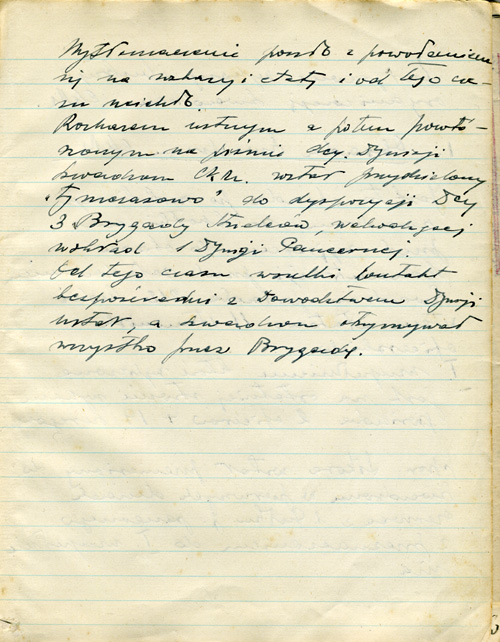 Wytłomaczenie poszło z powołaniem
się na nakazy i etaty i od tego cza-
su ucichło.
Rozkazem ustnym a potem powtó-
rzonym na piśmie dcy. Dywizji
szwadron C.K.M. został przydzielony
"tymczasowo" do dyspozycji Dcy
3 Brygady Strzelców, wchodzącej
w skład 1 Dywizji Pancernej.
Od tego czasu wszelki kontakt
bezpośredni z Dowództwem Dywizji
ustał, a szwadron otrzymywał
wszystko przez Brygadę.